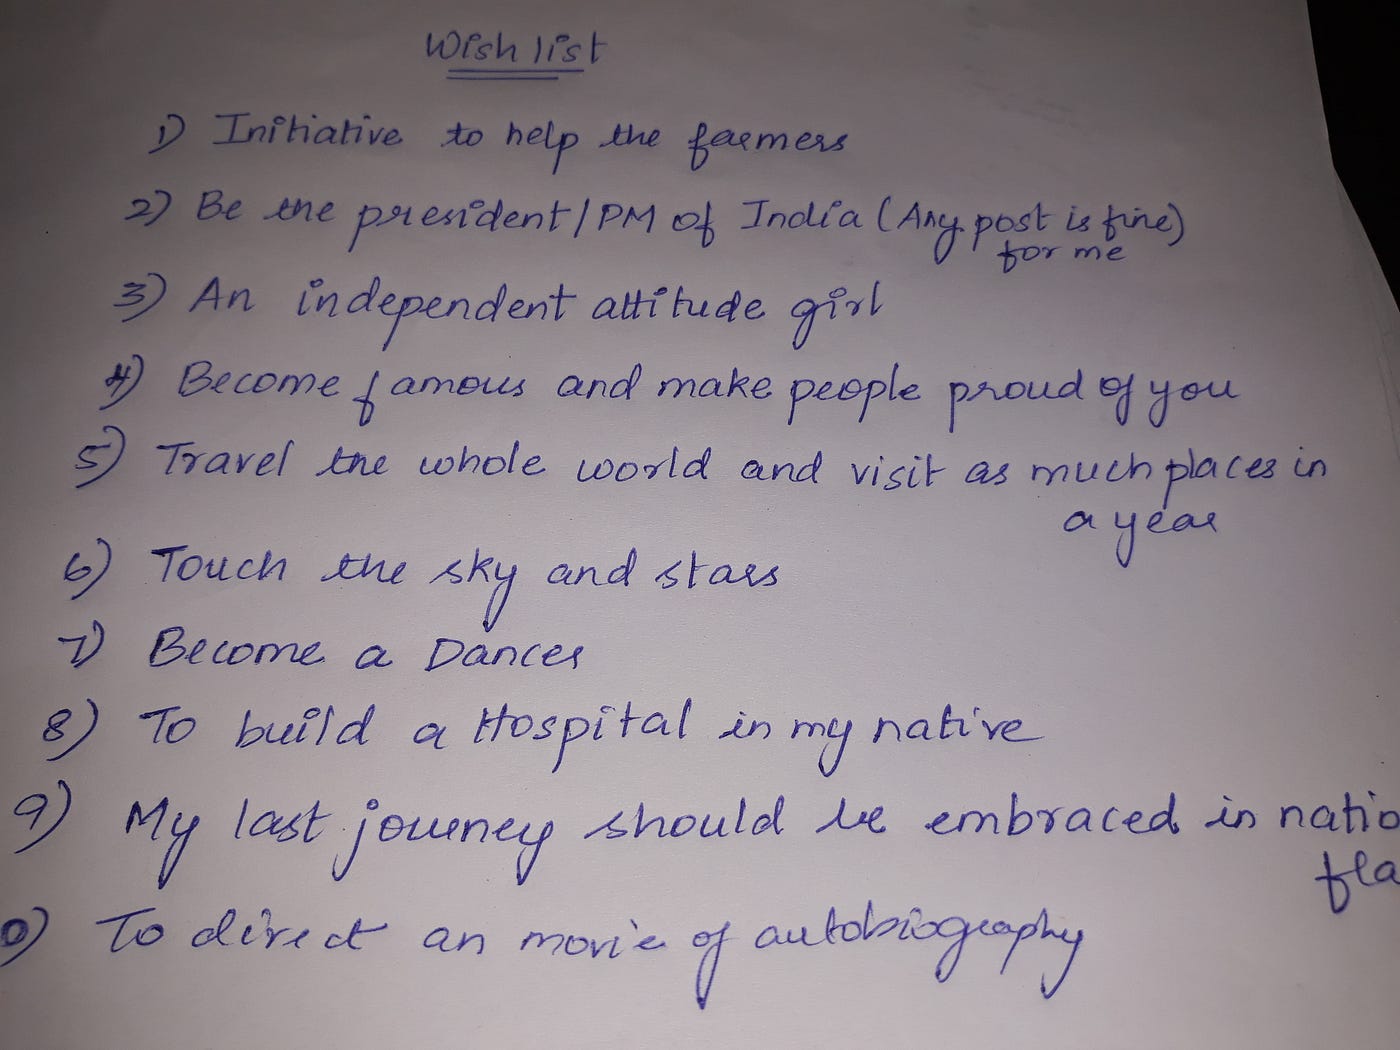 Wish list
1) Initiative to help the farmers
2) Be the president/PM of India (Any post is fine)
for me
3) An independent attitude girl
4) Become famous and make people proud of you
5) Travel the whole world and visit as much places in
a year
6) Touch the sky and stars
7) Become a Dancer
8) To build a Hospital in my native
9) My last journey should be embraced in natio
fla
0) To direct an movie of autobiography